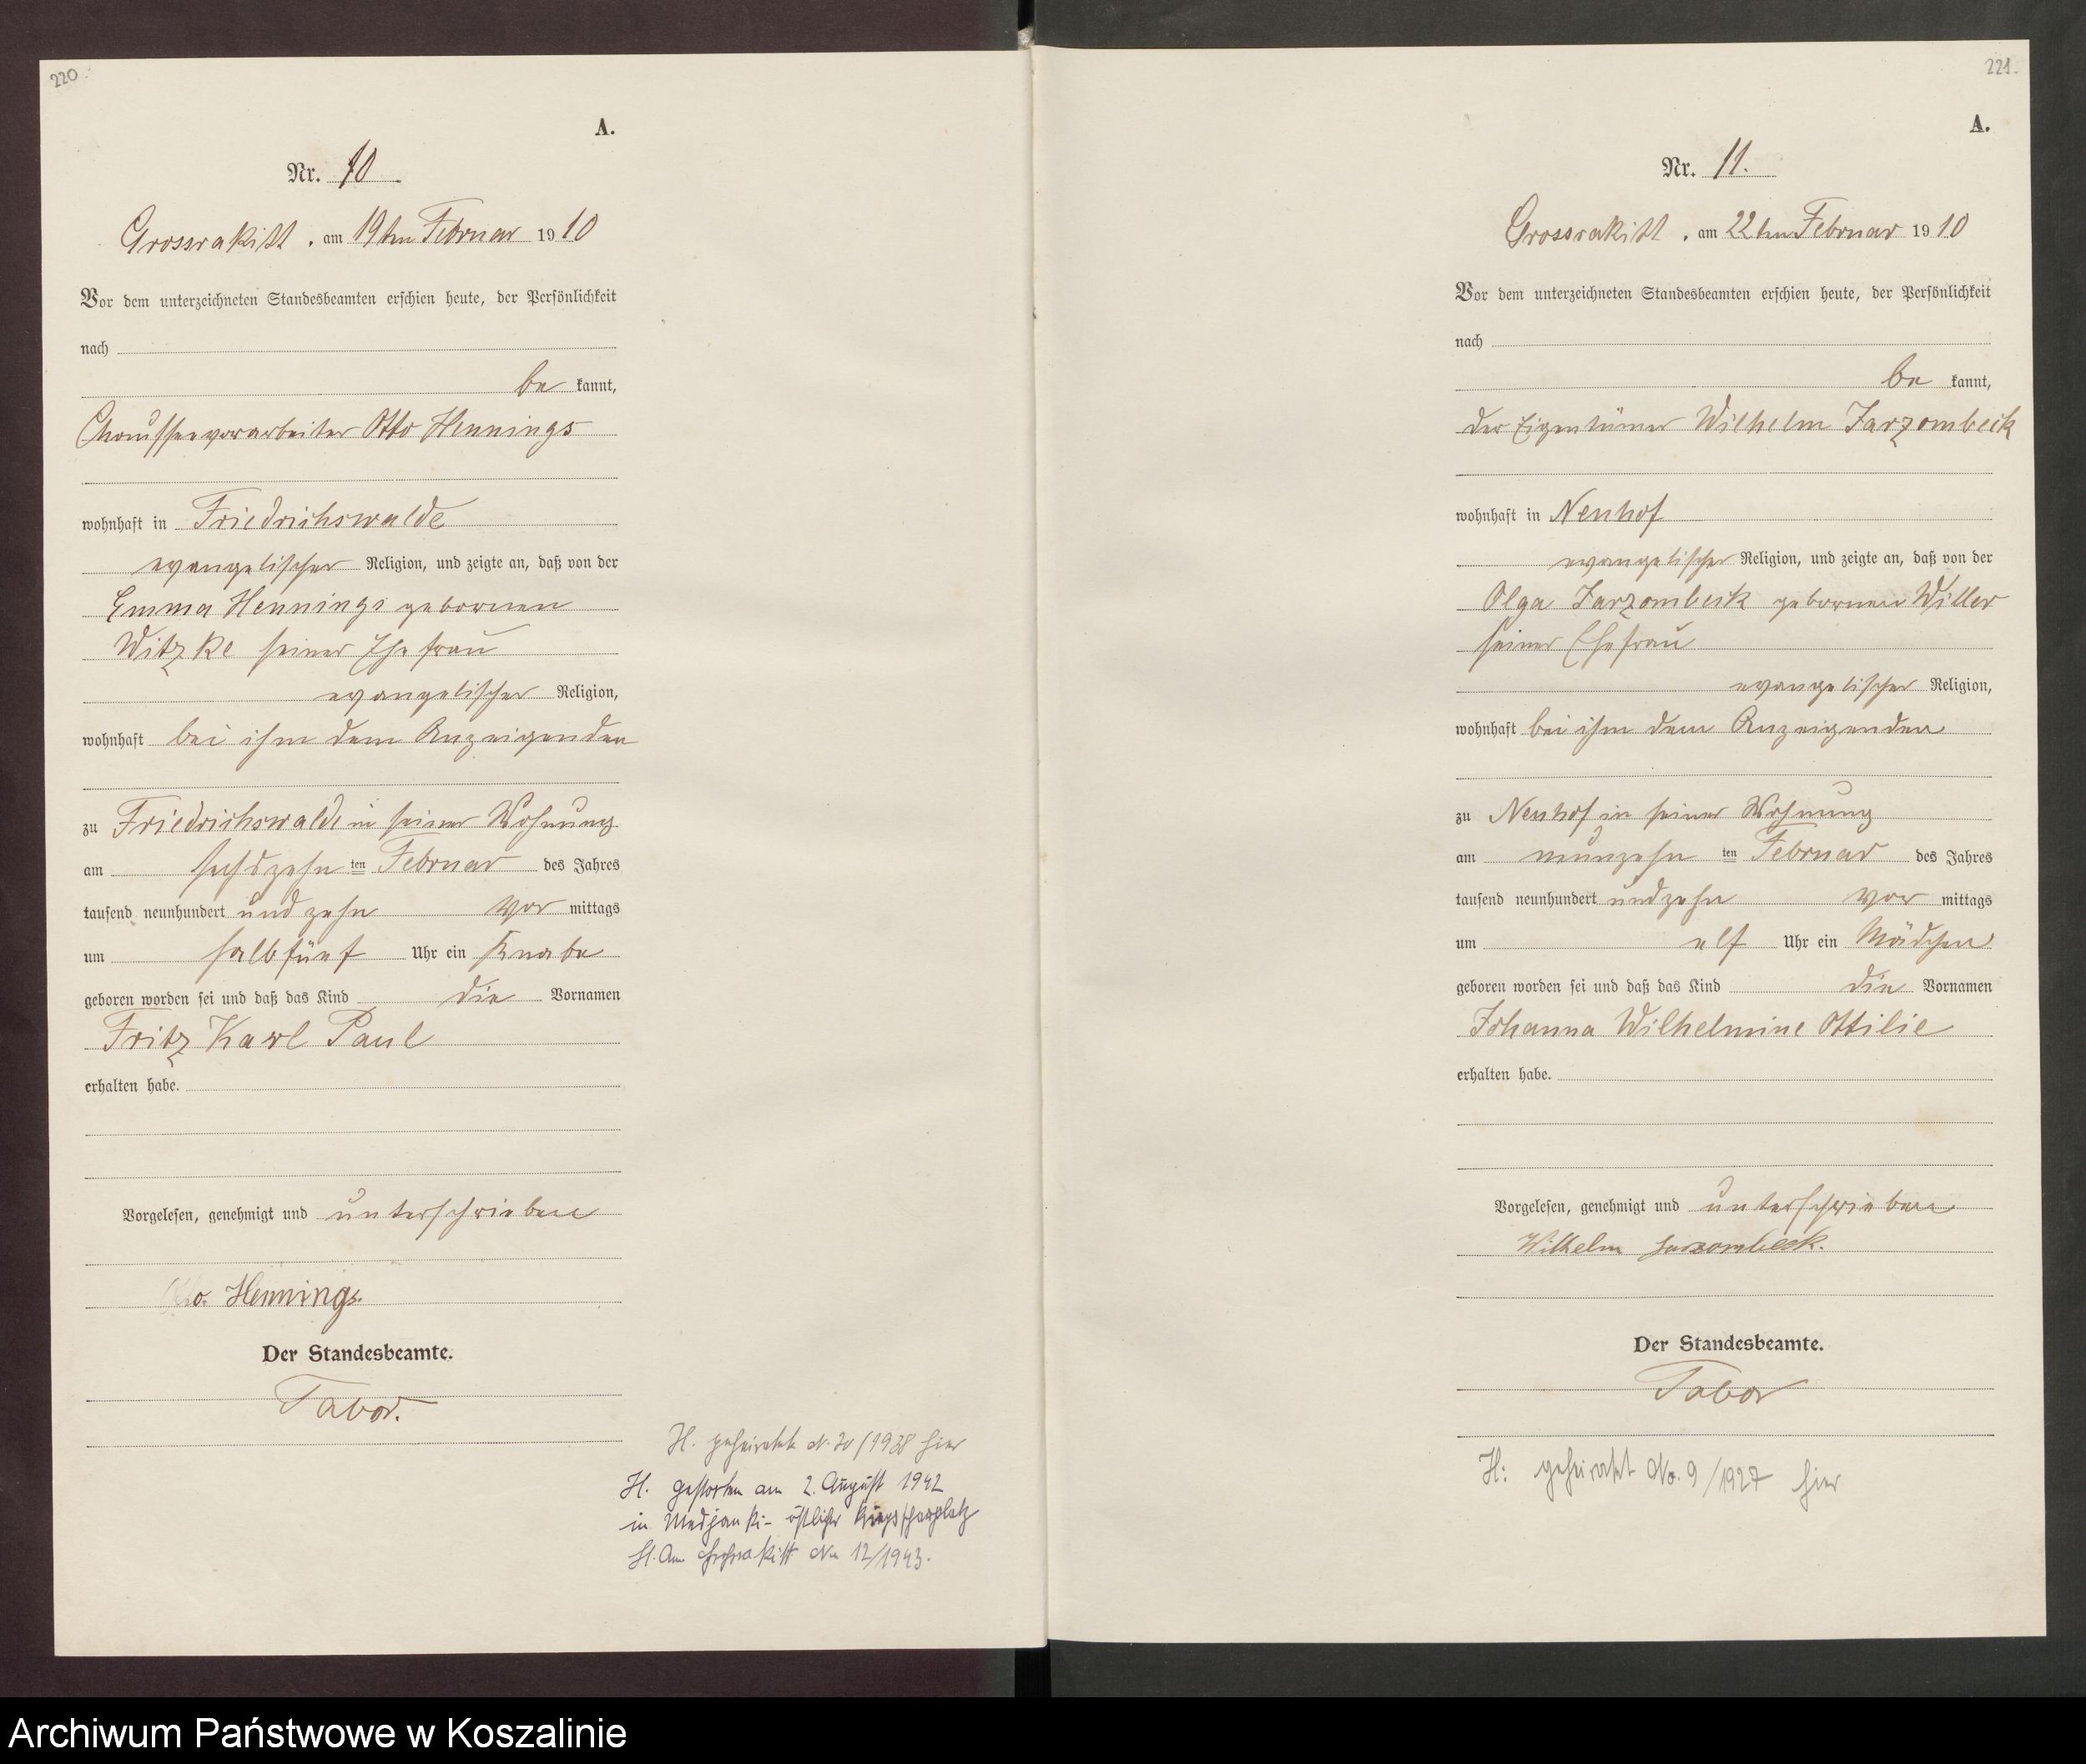 220.
A.
Nr. 10
Grossrakitt, am 19ten Februar 1910
Vor dem unterzeichneten Standesbeamten erschien heute, der Persönlichkeit
nach
be kannt,
Chausseevorarbeiter Otto Hennings
wohnhaft in Friedrichswalde
evangelischer Religion, und zeigte an, daß von der
Emma Hennings gebornen
Witzke seiner Ehefrau
evangelischer Religion,
wohnhaft bei ihm dem Anzeigenden
zu Friedrichswalde in seiner Wohnung
am sechszehn ten Februar des Jahres
tausend neunhundert und zehn vor mittags
um halb fünf Uhr ein Knabe
geboren worden sei und daß das Kind die Vornamen
Fritz Karl Paul
erhalten habe.
Vorgelesen, genehmigt und unterschrieben
Otto Hennings.
Der Standesbeamte.
Tabor.
H. geheiratet N. 20/1938 hier
H. gestorben am 2. August 1942
in - östlicher Kriegsschauplatz
St. Amt Grossrakitt No 12/1943.
221.
A.
Nr. 11.
Grossrakitt, am 22ten Februar 1910
Vor dem unterzeichneten Standesbeamten erschien heute, der Persönlichkeit
nach
be kannt,
der Eigentümer Wilhelm Jarzombeck
wohnhaft in Neuhof
evangelischer Religion, und zeigte an, daß von der
Olga Jarzombeck gebornen Willer
seiner Ehefrau
evangelischer Religion,
wohnhaft bei ihm dem Anzeigenden
zu Neuhof in seiner Wohnung
am neunzehn ten Februar des Jahres
tausend neunhundert und zehn vor mittags
um elf Uhr ein Mädchen
geboren worden sei und daß das Kind die Vornamen
Johanna Wilhelmine Ottilie
erhalten habe.
Vorgelesen, genehmigt und unterschrieben
Wilhelm Jarzombeck.
Der Standesbeamte.
Tabor
H: geheiratet No. 9/1927 hier
Archiwum Państwowe w Koszalinie